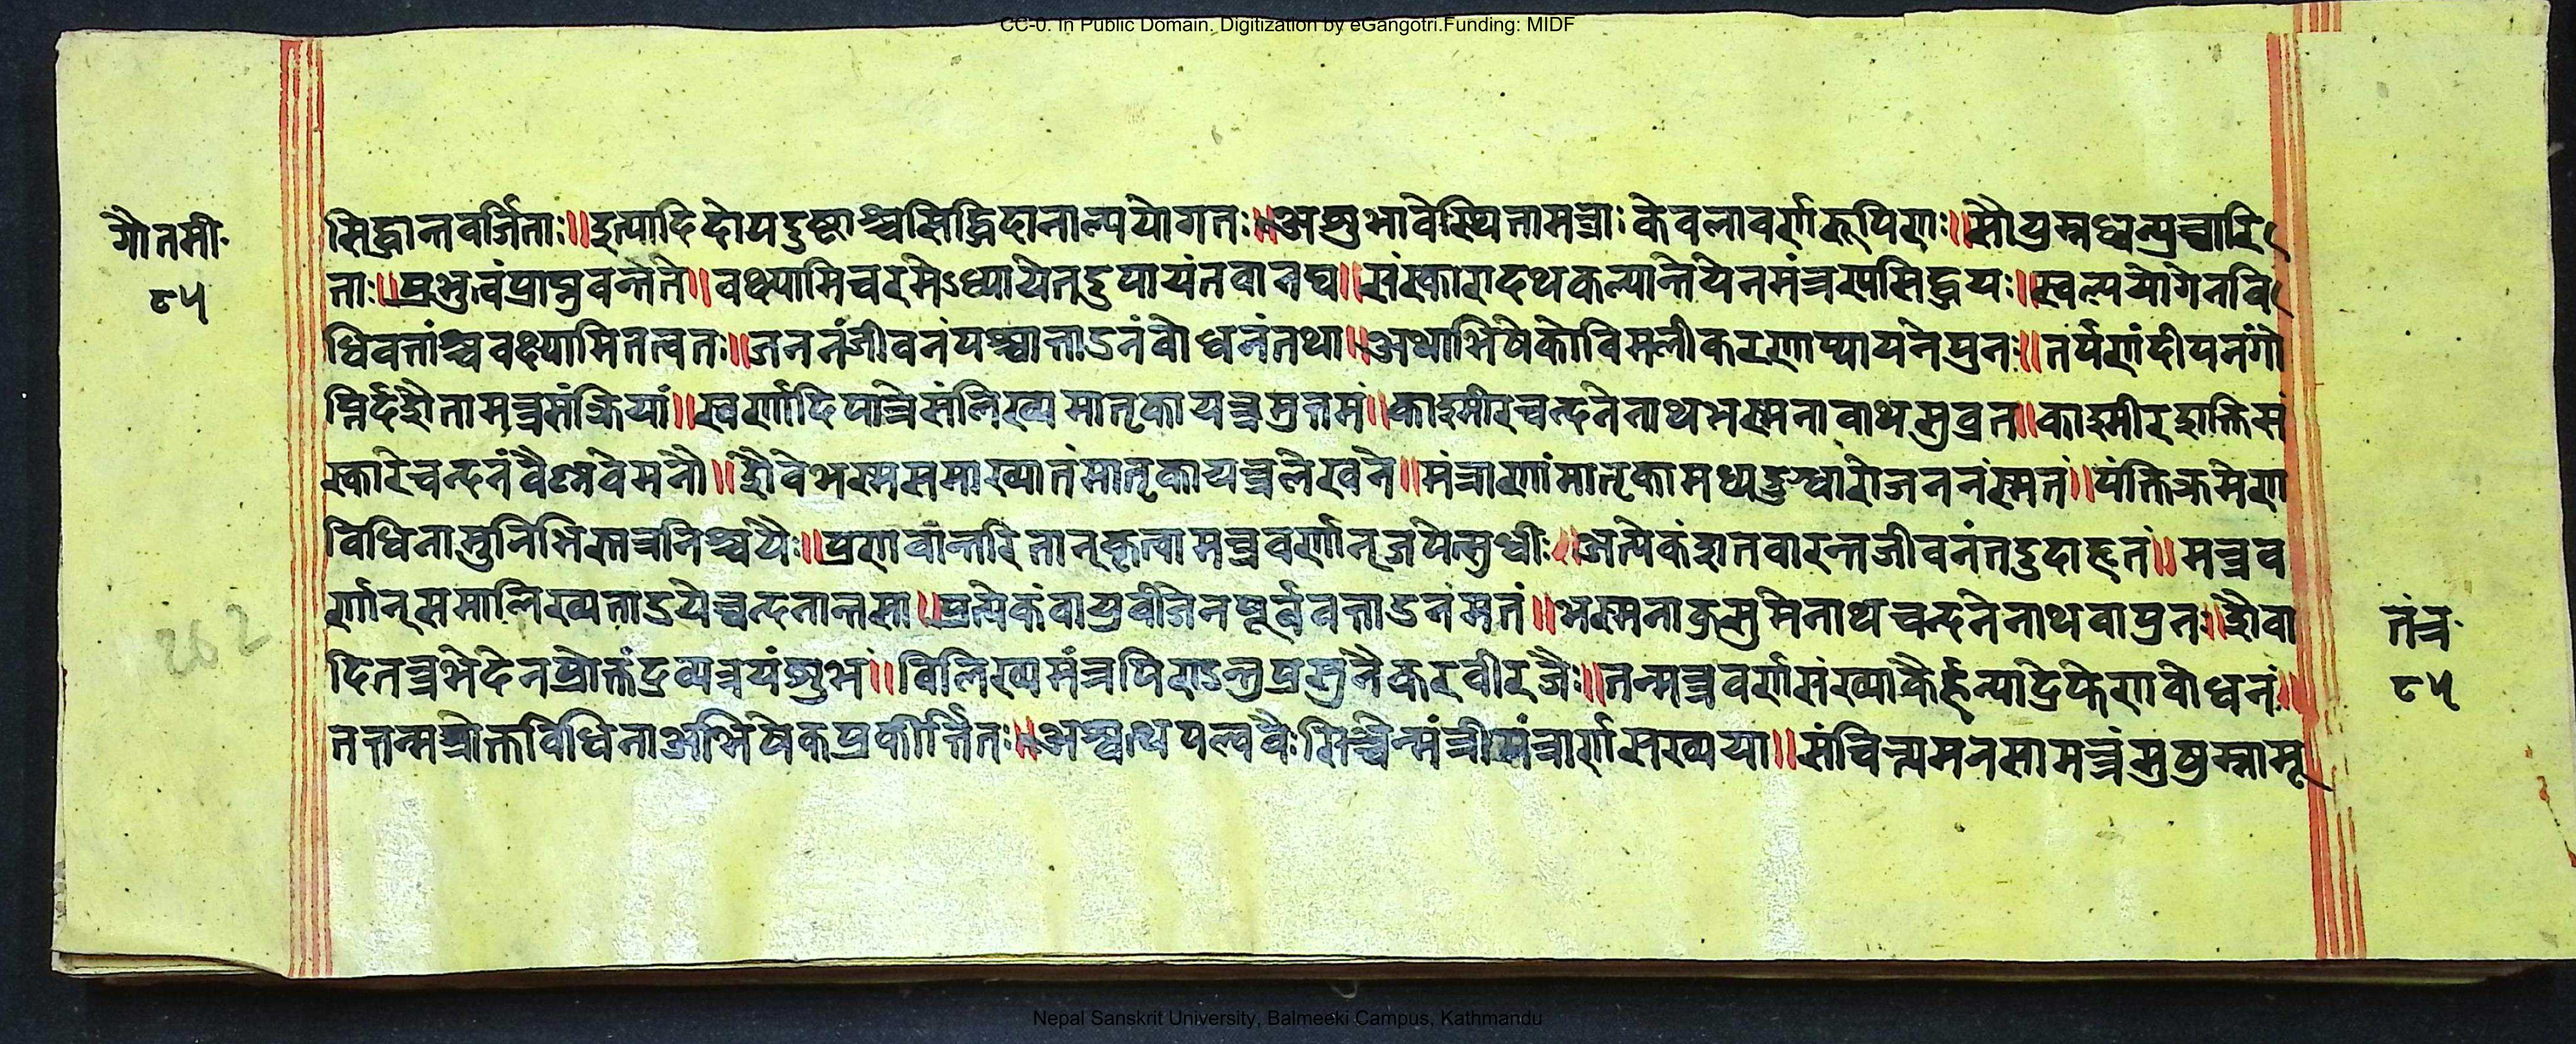 CC-0. In Public Domain. Digitization by eGangotri.Funding: MIDF
गौतमी॰
८५
सिद्धान्तवर्जिताः॥इत्यादिदोषदुष्टाश्चसिद्धिदानाल्पयोगतः॥अशुभावेस्थितामन्त्राःकेवलावर्णरूपिणः॥सौषुम्नध्वन्युच्चारि
ताः॥प्रभुत्वंप्राप्नुवन्तेते॥वक्ष्यामिचरमेऽध्यायेतदुपायंतवानघ॥संस्कारादथकल्पान्तेयेनमंत्रस्यसिद्धयः॥स्वल्पयोगेनवि
धिवत्तांश्चवक्ष्यामितत्वतः॥जननंजीवनंपश्चात्ताडनंबोधनंतथा॥अथाभिषेकोविमलीकरणाप्यायनेपुनः॥तर्पणंदीपनंगो
प्तिर्दशैतामन्त्रसंक्रिया॥स्वर्णादिपात्रेसंलिख्यमातृकायन्त्रमुत्तमं॥काश्मीरचन्दनेनाथभस्मनावाथसुव्रत॥काश्मीरशक्तिसं
स्कारेचन्दनंवैष्णवेमनौ॥शैवेभस्मसमाख्यातंमातृकायन्त्रलेखने॥मंत्राणांमातृकामध्यदुद्धारोजननंस्मृतं॥पंक्तिक्रमेण
विधिनामुनिभिस्तत्रनिश्चयैः॥प्रणवांन्तरितान्कृत्वामन्त्रवर्णान्जपेत्सुधीः॥प्रत्येकंशतवारन्तजीवनंतदुदाहृतं॥मन्त्रव
र्णान्समालिख्यताडयेच्चन्दनाम्भसा॥प्रत्येकंवायुबीजेनपूर्ववत्ताडनंमतं॥भस्मनाकुसुमेनाथचन्दनेनाथवापुनः॥शैवा
दितन्त्रभेदेनप्रोक्तंद्रव्यत्रयंशुभं॥विलिख्यमंत्रप्रसुनैकरवीरजैः॥तन्मन्त्रवर्णसंख्याकैर्हन्याद्रेफेणबोधनं॥
तत्तन्मन्त्रोक्तविधिनाअभिषेकप्रकीर्त्तितः॥अश्वत्थपल्लवैःसिञ्चेन्मंत्रीमंत्रार्णसख्यया॥संचिन्त्यमनसामन्त्रंसुषुम्नामू
262
तंत्र॰
८५
Nepal Sanskrit University, Balmeeki Campus, Kathmandu